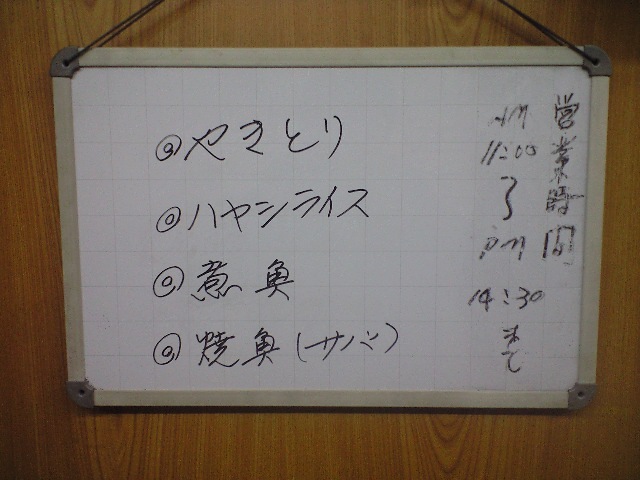 ◎やきとり
◎ハヤシライス
◎煮魚
◎焼魚(サバ)
営業時間
AM 11:00 〜 PM 14:30 まで